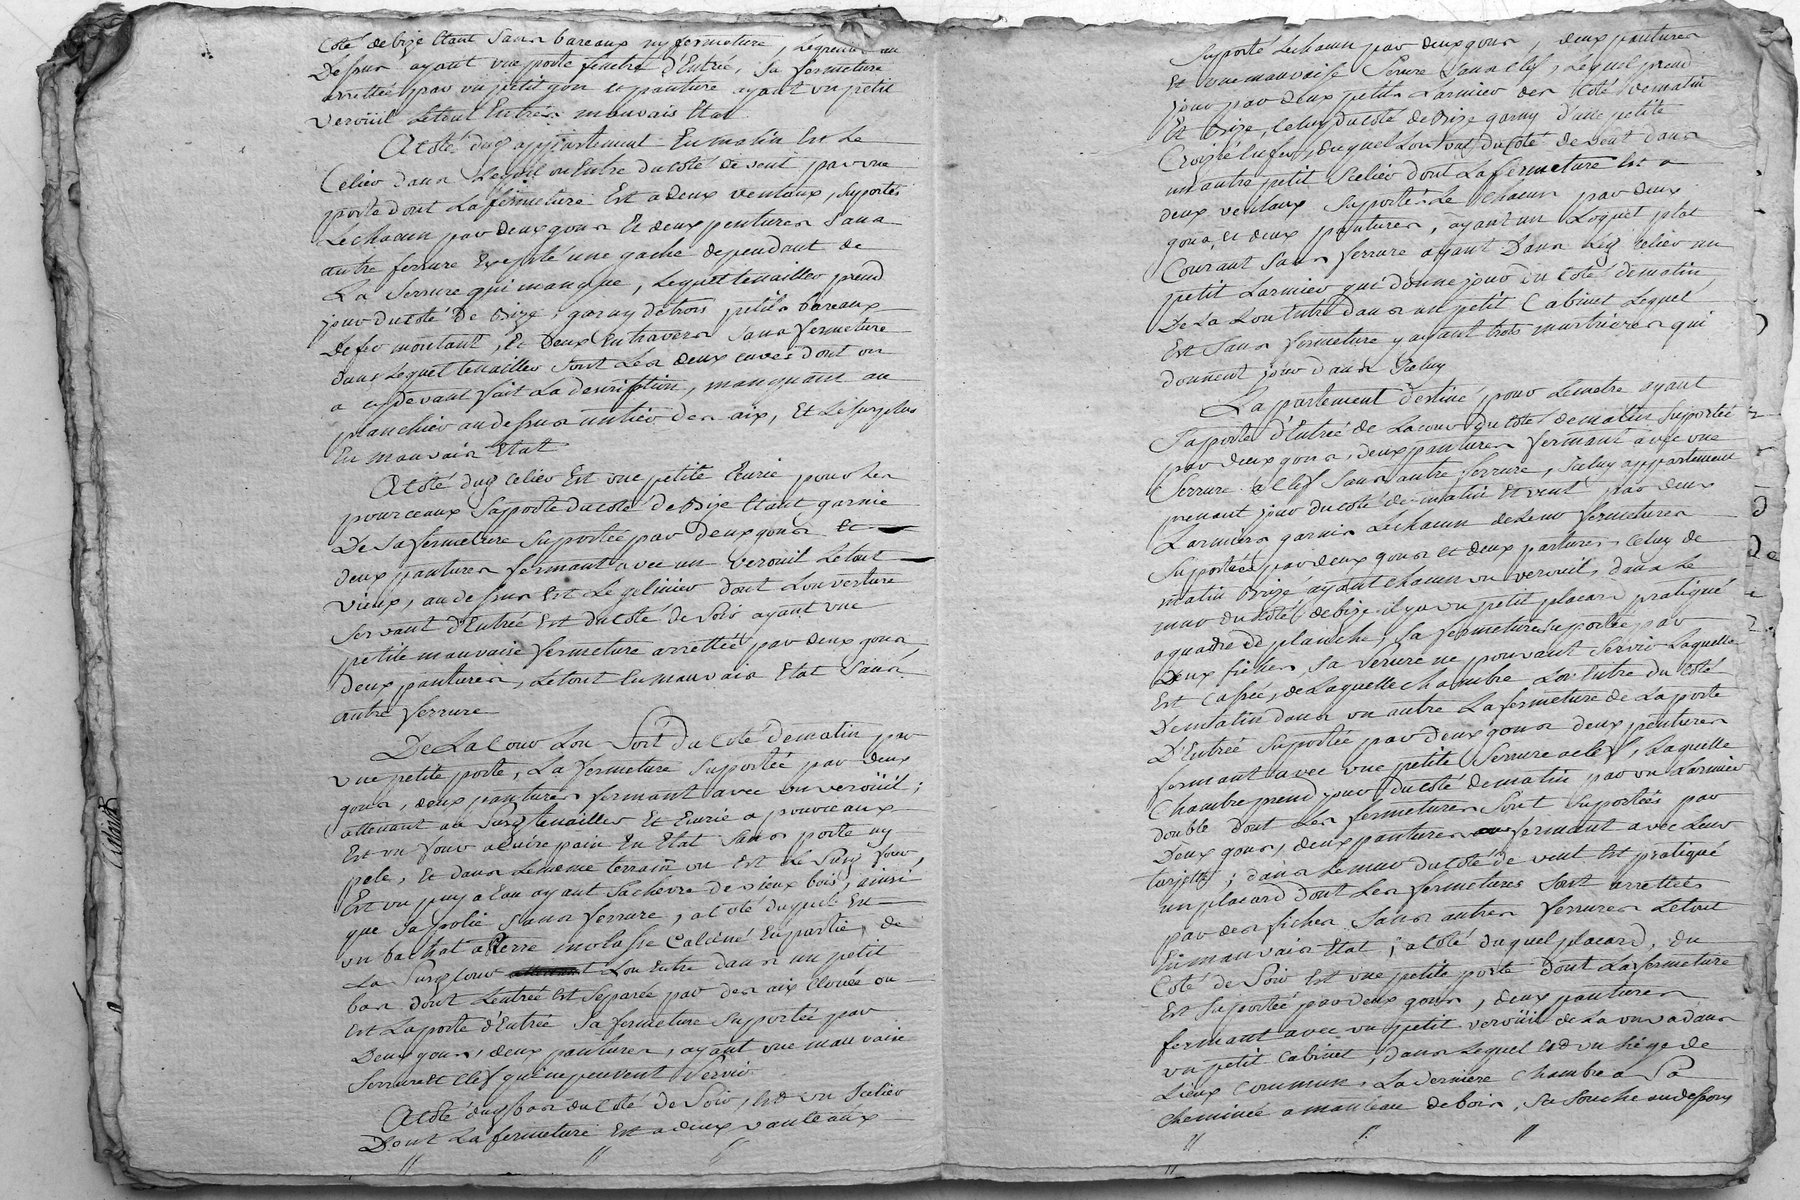 Coté debize Etant Sans bareaux ny fermeture, Legrenier au
Dessus ayant une porte fenetre d'Entrée, Sa fermeture
arrettée par un petit gon et panture ayant un petit
Veroüil Letout Entrés mauvais Etat
A coté dug appartement En matin Est Le
Celier dans Lequel on Entre du coté de vent par une
porte dont La fermeture Est a deux ventaux, Suportés
Le chacun par deux gons Et deux pentures Sans
autre ferrure Excepté une gache dependant de
La Serrure qui manque, Lequel tenaillier prend
jour du coté De Bize, garny de trois petits bareaux
De fer montant, Et Deux En travers Sans fermeture
Dans Lequel tenaillier Sont Les deux cuves dont on
a cydevant fait La description, manquant au
planchier au dessus un tiers des aix, Et Le Surplus
En mauvais Etat
A coté dug Celier Est une petite Ecurie pour Les
pourceaux Sa porte du coté de Bize Etant garnie
De Sa fermeture Suportée par Deux gons Et
deux pantures fermant avec un verouil Le tout
vieux, au dessus Est Le gelinier dont L'ouverture
Servant d'Entrée Est du coté de Soir ayant une
petite mauvaise fermeture arrettée par deux gons
deux pantures, Letout En mauvais Etat Sans
autre ferrure
De La Cour Lon Sort du Coté de matin par
une petite porte, La fermeture Suportée par deux
gons, deux pantures fermant avec un verouil;
attenant au Surg tenaillier Et Ecurie a pourceaux
Est un four a cuire pain En Etat Sans porte ny
pele, Et dans Le meme terrain ou Est Le Surg four,
Est un puy a Eau ayant Sa chevre de vieux bois, ainsi
que Sa polie Sans ferrure, a coté duquel En
un bachat a Pierre molasse Calciné En partie, de
La Surg cour Lon Entre dans un petit
bas dont L'entrée Est Separée par des aix Clouée ou
Est La porte d'Entrée Sa fermeture Suportée par
Deux gons, deux pantures, ayant une mauvaise
Serrure Et Clef qui ne peuvent Servir
A coté dug bas du Coté de Soir, Est un Scelier
Dont La fermeture Est a deux vanteaux
Suporté Lechacun par deux gons, deux pantures
Et une mauvaise Serrure Sans Clef, Lequel prend
jour par deux petits Larmiers des Coté de matin
Et Bize, Celuy du Coté de Bize garny d'une petite
Croisée En fer, duquel Lon va du Coté de Vent dans
un autre petit Scelier dont La fermeture Est a
deux ventaux Suportés Le Chacun par deux
gons, Et deux pantures, ayant un Loquet plat
Courant Sans ferrure ayant Dans Leg Celier un
petit Larmier qui donne jour du Coté de matin,
De La Lon Entre dans un petit Cabinet Lequel
Est Sans fermeture y ayant trois murtrieres qui
donnent jour dans Iceluy
L'appartement destiné pour Lemetre ayant
Sa porte d'Entrée de La cour du coté de matin Suporté
par deux gons, deux pantures fermant avec une
Serrure a Clef Sans autre ferrure, Iceluy appartement
prenant jour du coté de matin Et vent par deux
Larmiers garnis Lechacun de Leur fermetures
Suportées par deux gons et deux pantures Celuy de
matin Brizé ayant chacun un verouil, dans Le
mur du coté de bize il y a un petit placard pratiqué
a quadre de planche, Sa fermeture Suportée par
Deux fiches, Sa Serrure ne pouvant Servir Laquelle
Est Cassée, de Laquelle chambre Lon Entre du Coté
De matin dans un autre La fermeture de La porte
D'Entrée Suportée par deux gons deux pentures
fermant avec une petite Serrure a clef, Laquelle
Chambre prend jour du Coté de matin par un Larmier
double dont Les fermetures Sont Suportées par
Deux gons, deux pantures fermant avec Leur
targette; dans Le mur du Coté de vent Est pratiqué
un placard dont Les fermetures Sont arrettées
par des fiches Sans autres ferrures Le tout
En mauvais Etat; a Coté duquel placard, du
Coté de Soir Est une petite porte dont La fermeture
Est Suportée par deux gons, deux pantures
fermant avec un petit verouil de La on va dans
un petit Cabinet, dans Lequel Est un Siége de
Lieux Communs, La derniere Chambre a Sa
Cheminée a manteau de bois, Sa Souche au dessous